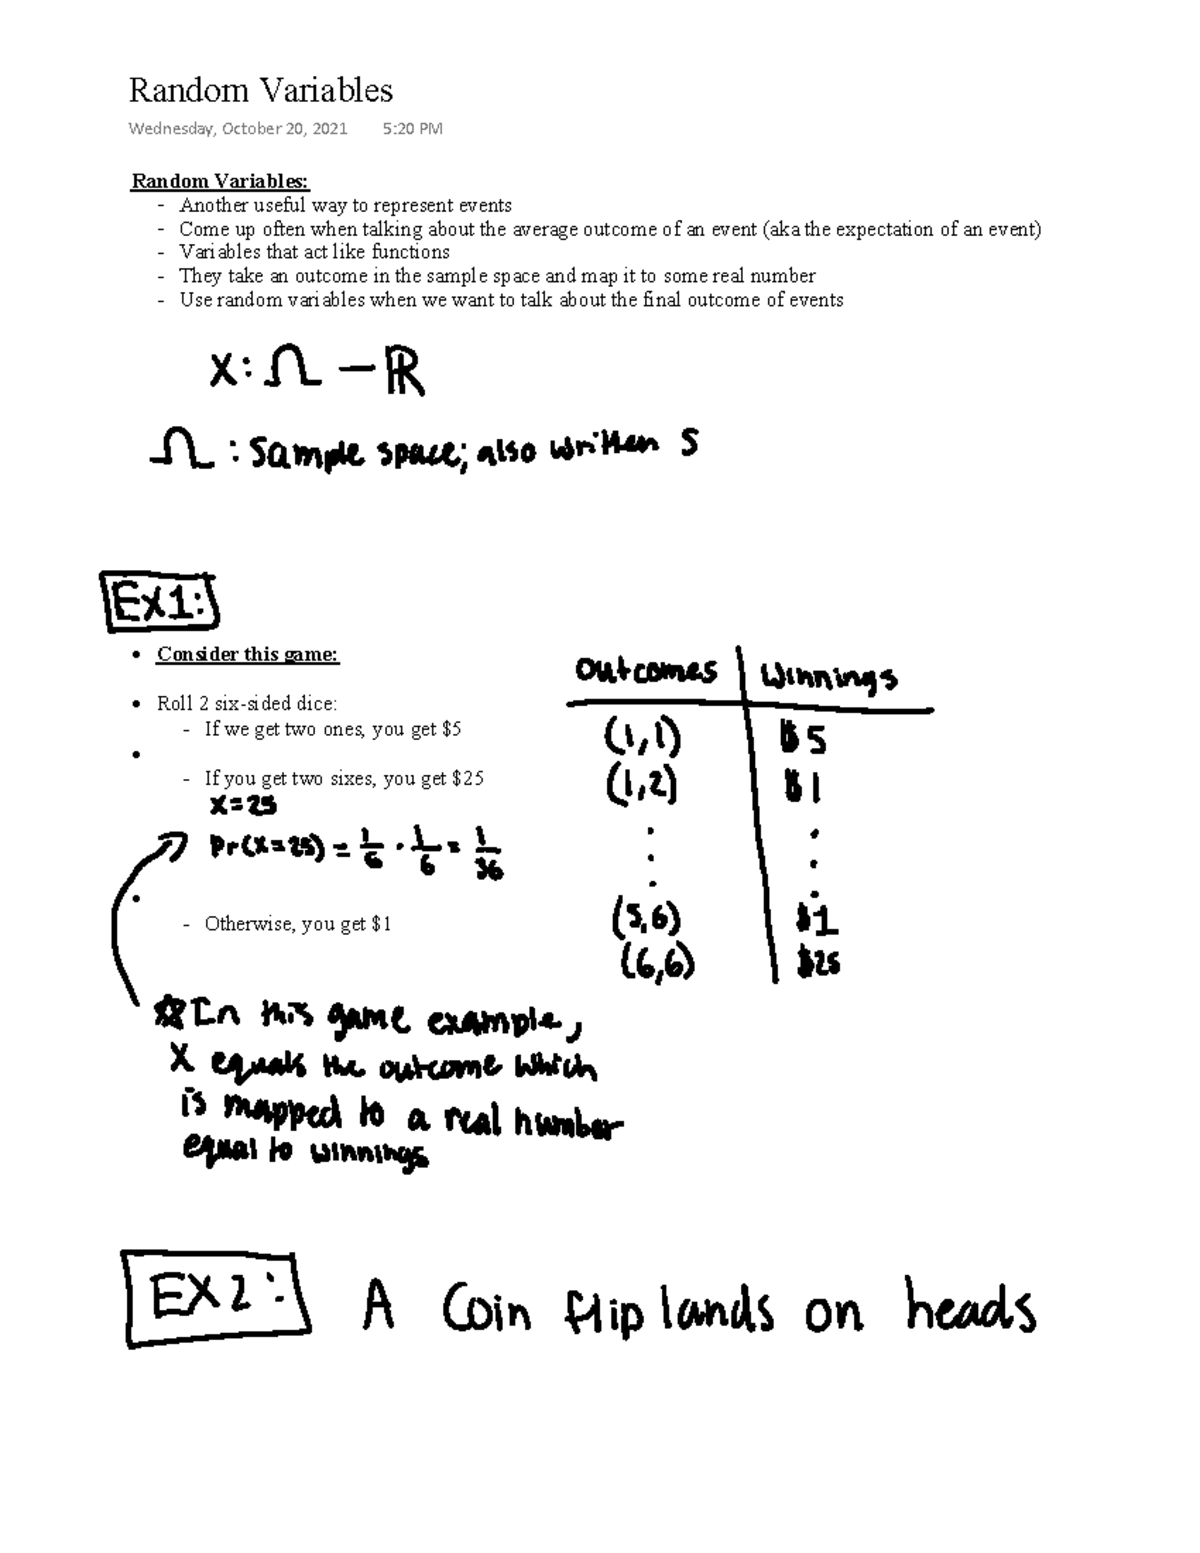 Random Variables
Wednesday, October 20, 2021 5:20 PM
Random Variables:
- Another useful way to represent events
- Come up often when talking about the average outcome of an event (aka the expectation of an event)
- Variables that act like functions
- They take an outcome in the sample space and map it to some real number
- Use random variables when we want to talk about the final outcome of events
X: Ω — ℝ
Ω : Sample space; also written S
EX1:
• Consider this game:
• Roll 2 six-sided dice:
- If we get two ones, you get $5
•
- If you get two sixes, you get $25
X=25
Pr(X=25) = 1/6 · 1/6 = 1/36
•
- Otherwise, you get $1
Outcomes | Winnings
(1,1) | $5
(1,2) | $1
. | .
. | .
. | .
(5,6) | $1
(6,6) | $25
☆ In this game example,
X equals the outcome which
is mapped to a real number
equal to winnings
EX2: A Coin flip lands on heads